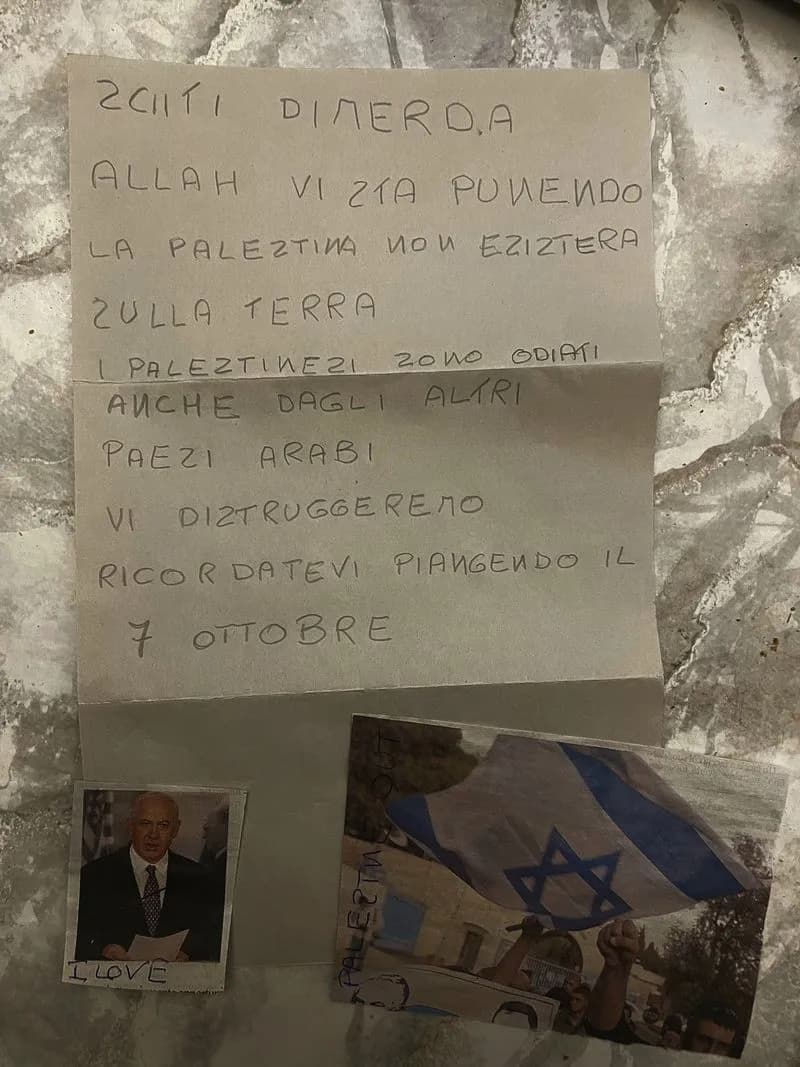 ZCIITI DIMERD.A
ALLAH VI ZTA PUNENDO
LA PALEZTINA NON EZIZTERA
ZULLA TERRA
I PALEZTINEZI ZONO ODIATI
ANCHE DAGLI ALTRI
PAEZI ARABI
VI DIZTRUGGEREMO
RICORDATEVI PIANGENDO IL
7 OTTOBRE
I LOVE
PALEZTINA OUT